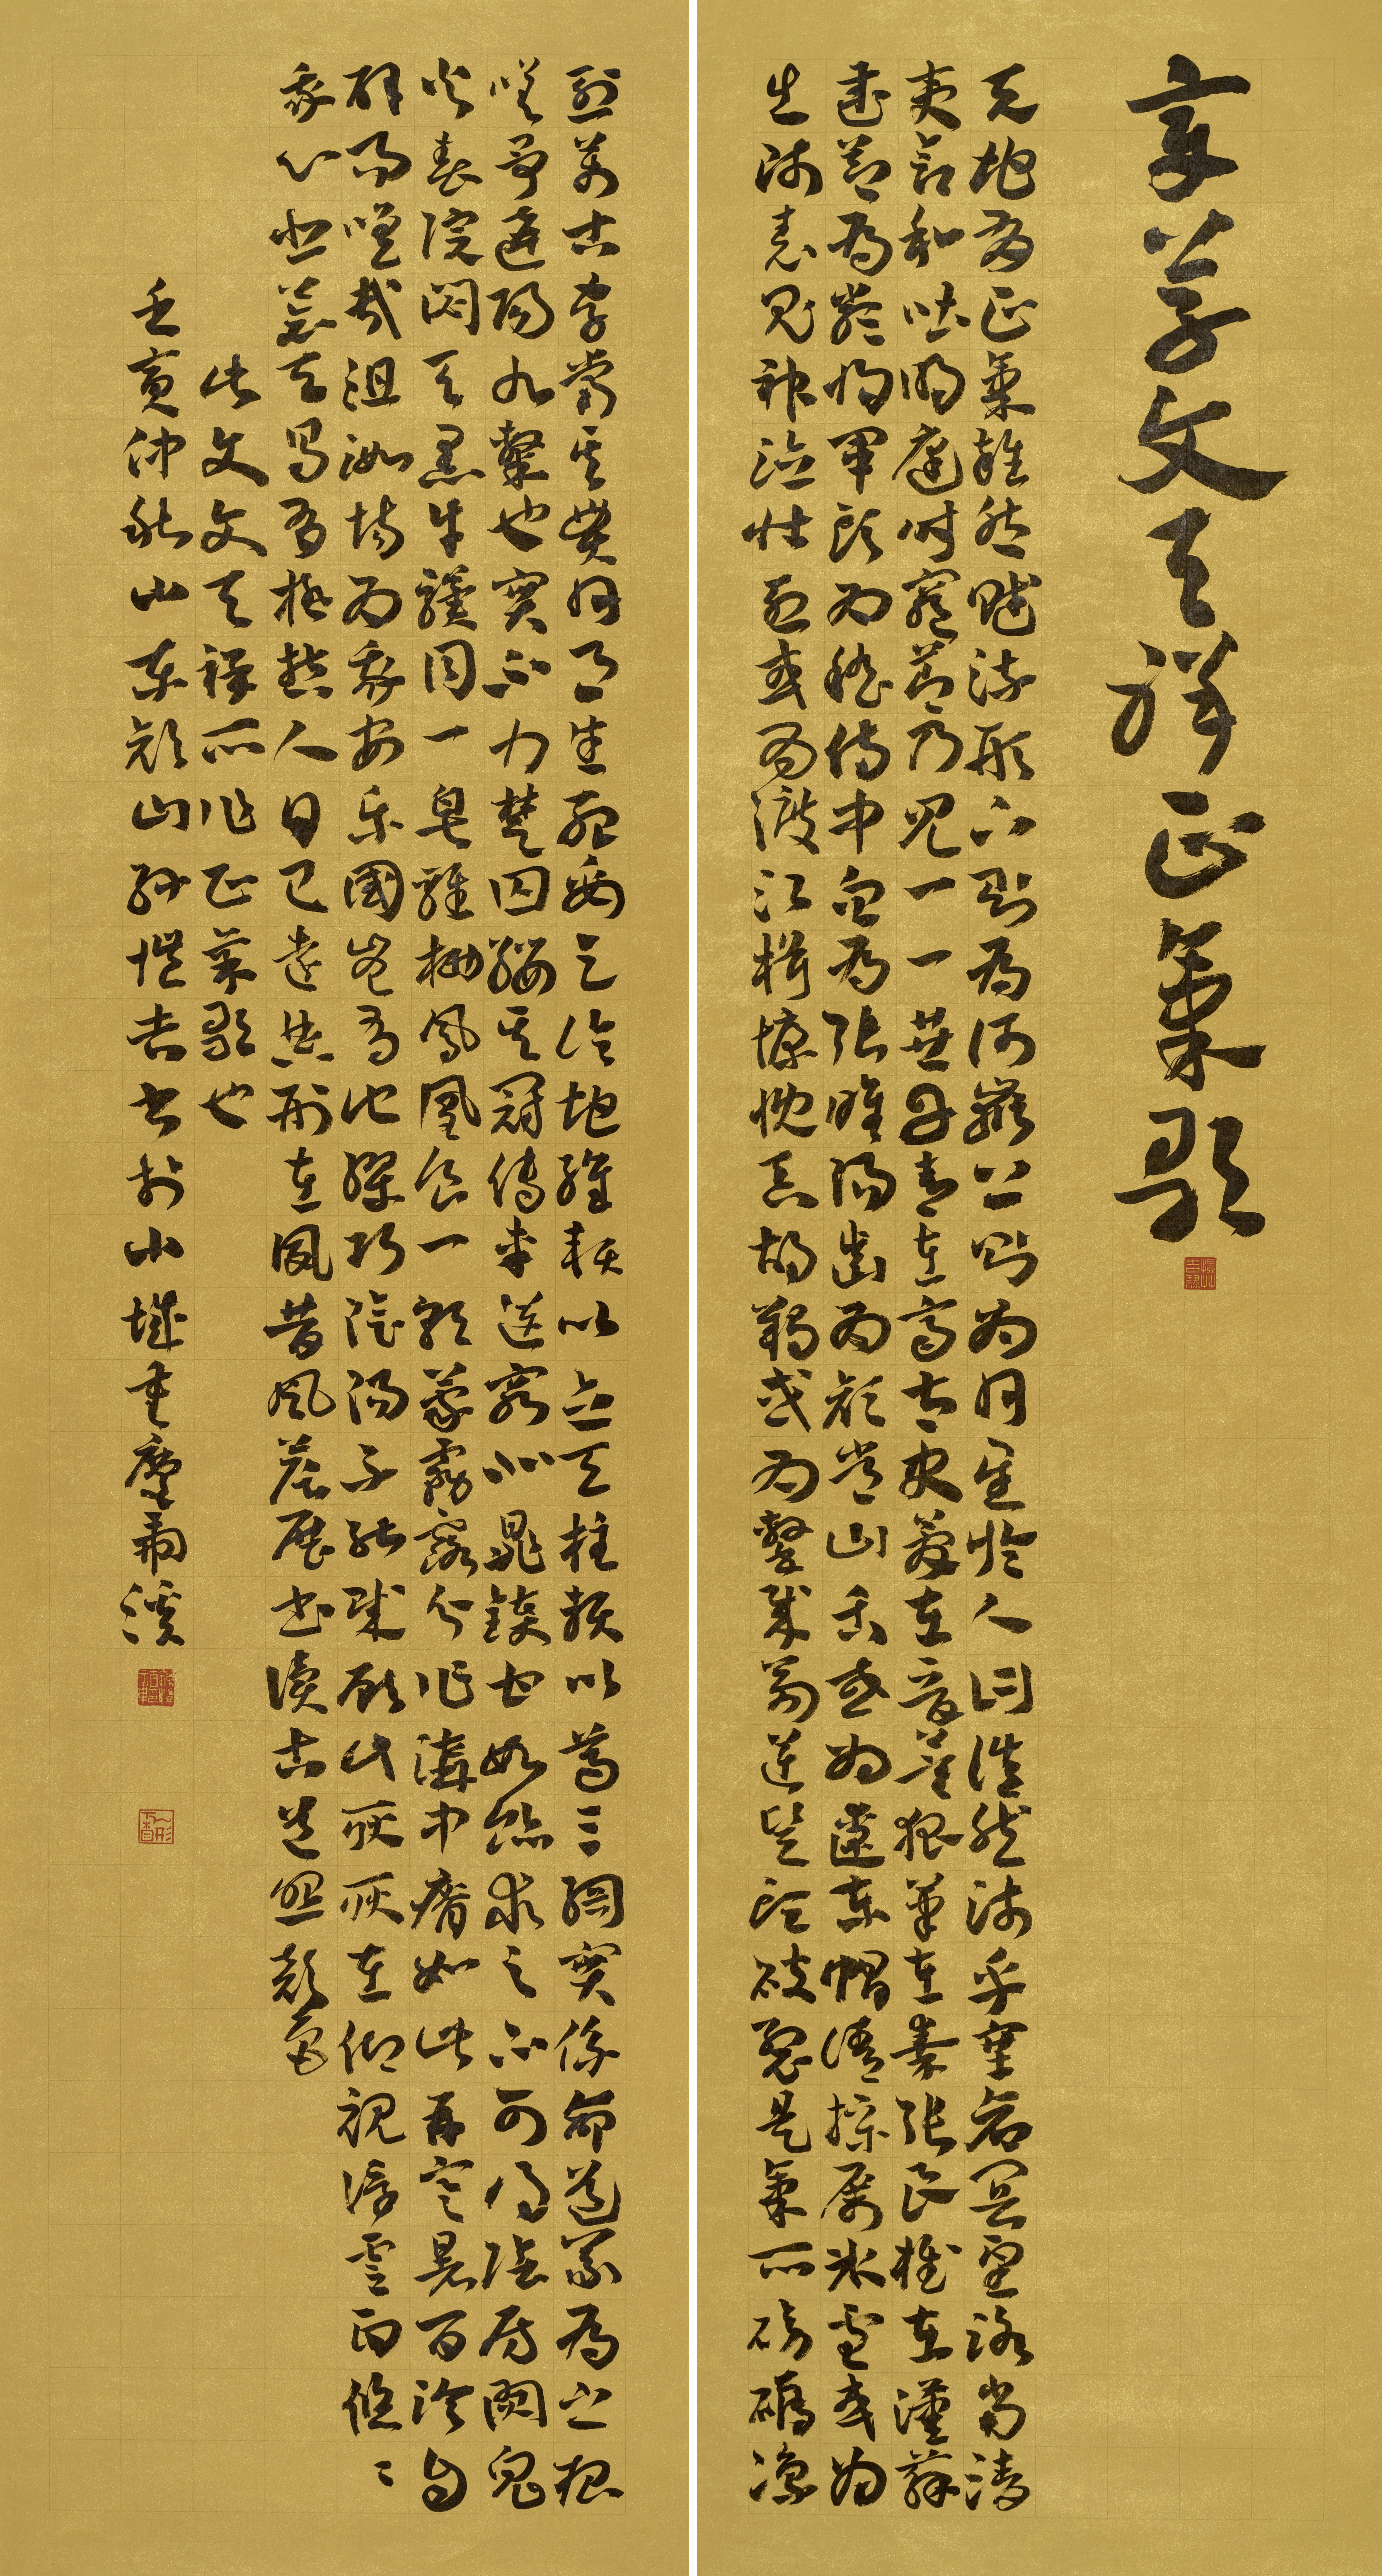 章草文天祥正氣歌
天地有正氣雜然賦流形下則為河嶽上則為日星於人曰浩然沛乎塞蒼冥皇路當清
夷含和吐明庭時窮節乃見一一垂丹青在齊太史簡在晉董狐筆在秦張良椎在漢蘇
武節為嚴將軍頭為嵇侍中血為張睢陽齒為顏常山舌或為遼東帽清操厲冰雪或為
出師表鬼神泣壯烈或為渡江楫慷慨吞胡羯或為擊賊笏逆豎頭破裂是氣所磅礴凜
烈萬古存當其貫日月生死安足論地維賴以立天柱賴以尊三綱實係命道義為之根
嗟予遘陽九隸也實不力楚囚纓其冠傳車送窮北鼎鑊甘如飴求之不可得陰房闃鬼
火春院閟天黑牛驥同一皂雞棲鳳凰食一朝蒙霧露分作溝中瘠如此再寒暑百沴自
辟易嗟哉沮洳場為我安樂國豈有他繆巧陰陽不能賊顧此耿耿在仰視浮雲白悠々
我心悲蒼天曷有極哲人日已遠典刑在夙昔風簷展書讀古道照顏色
此文文天祥所作正氣歌也
壬寅仲秋山東山孫吉書於山城重慶溪